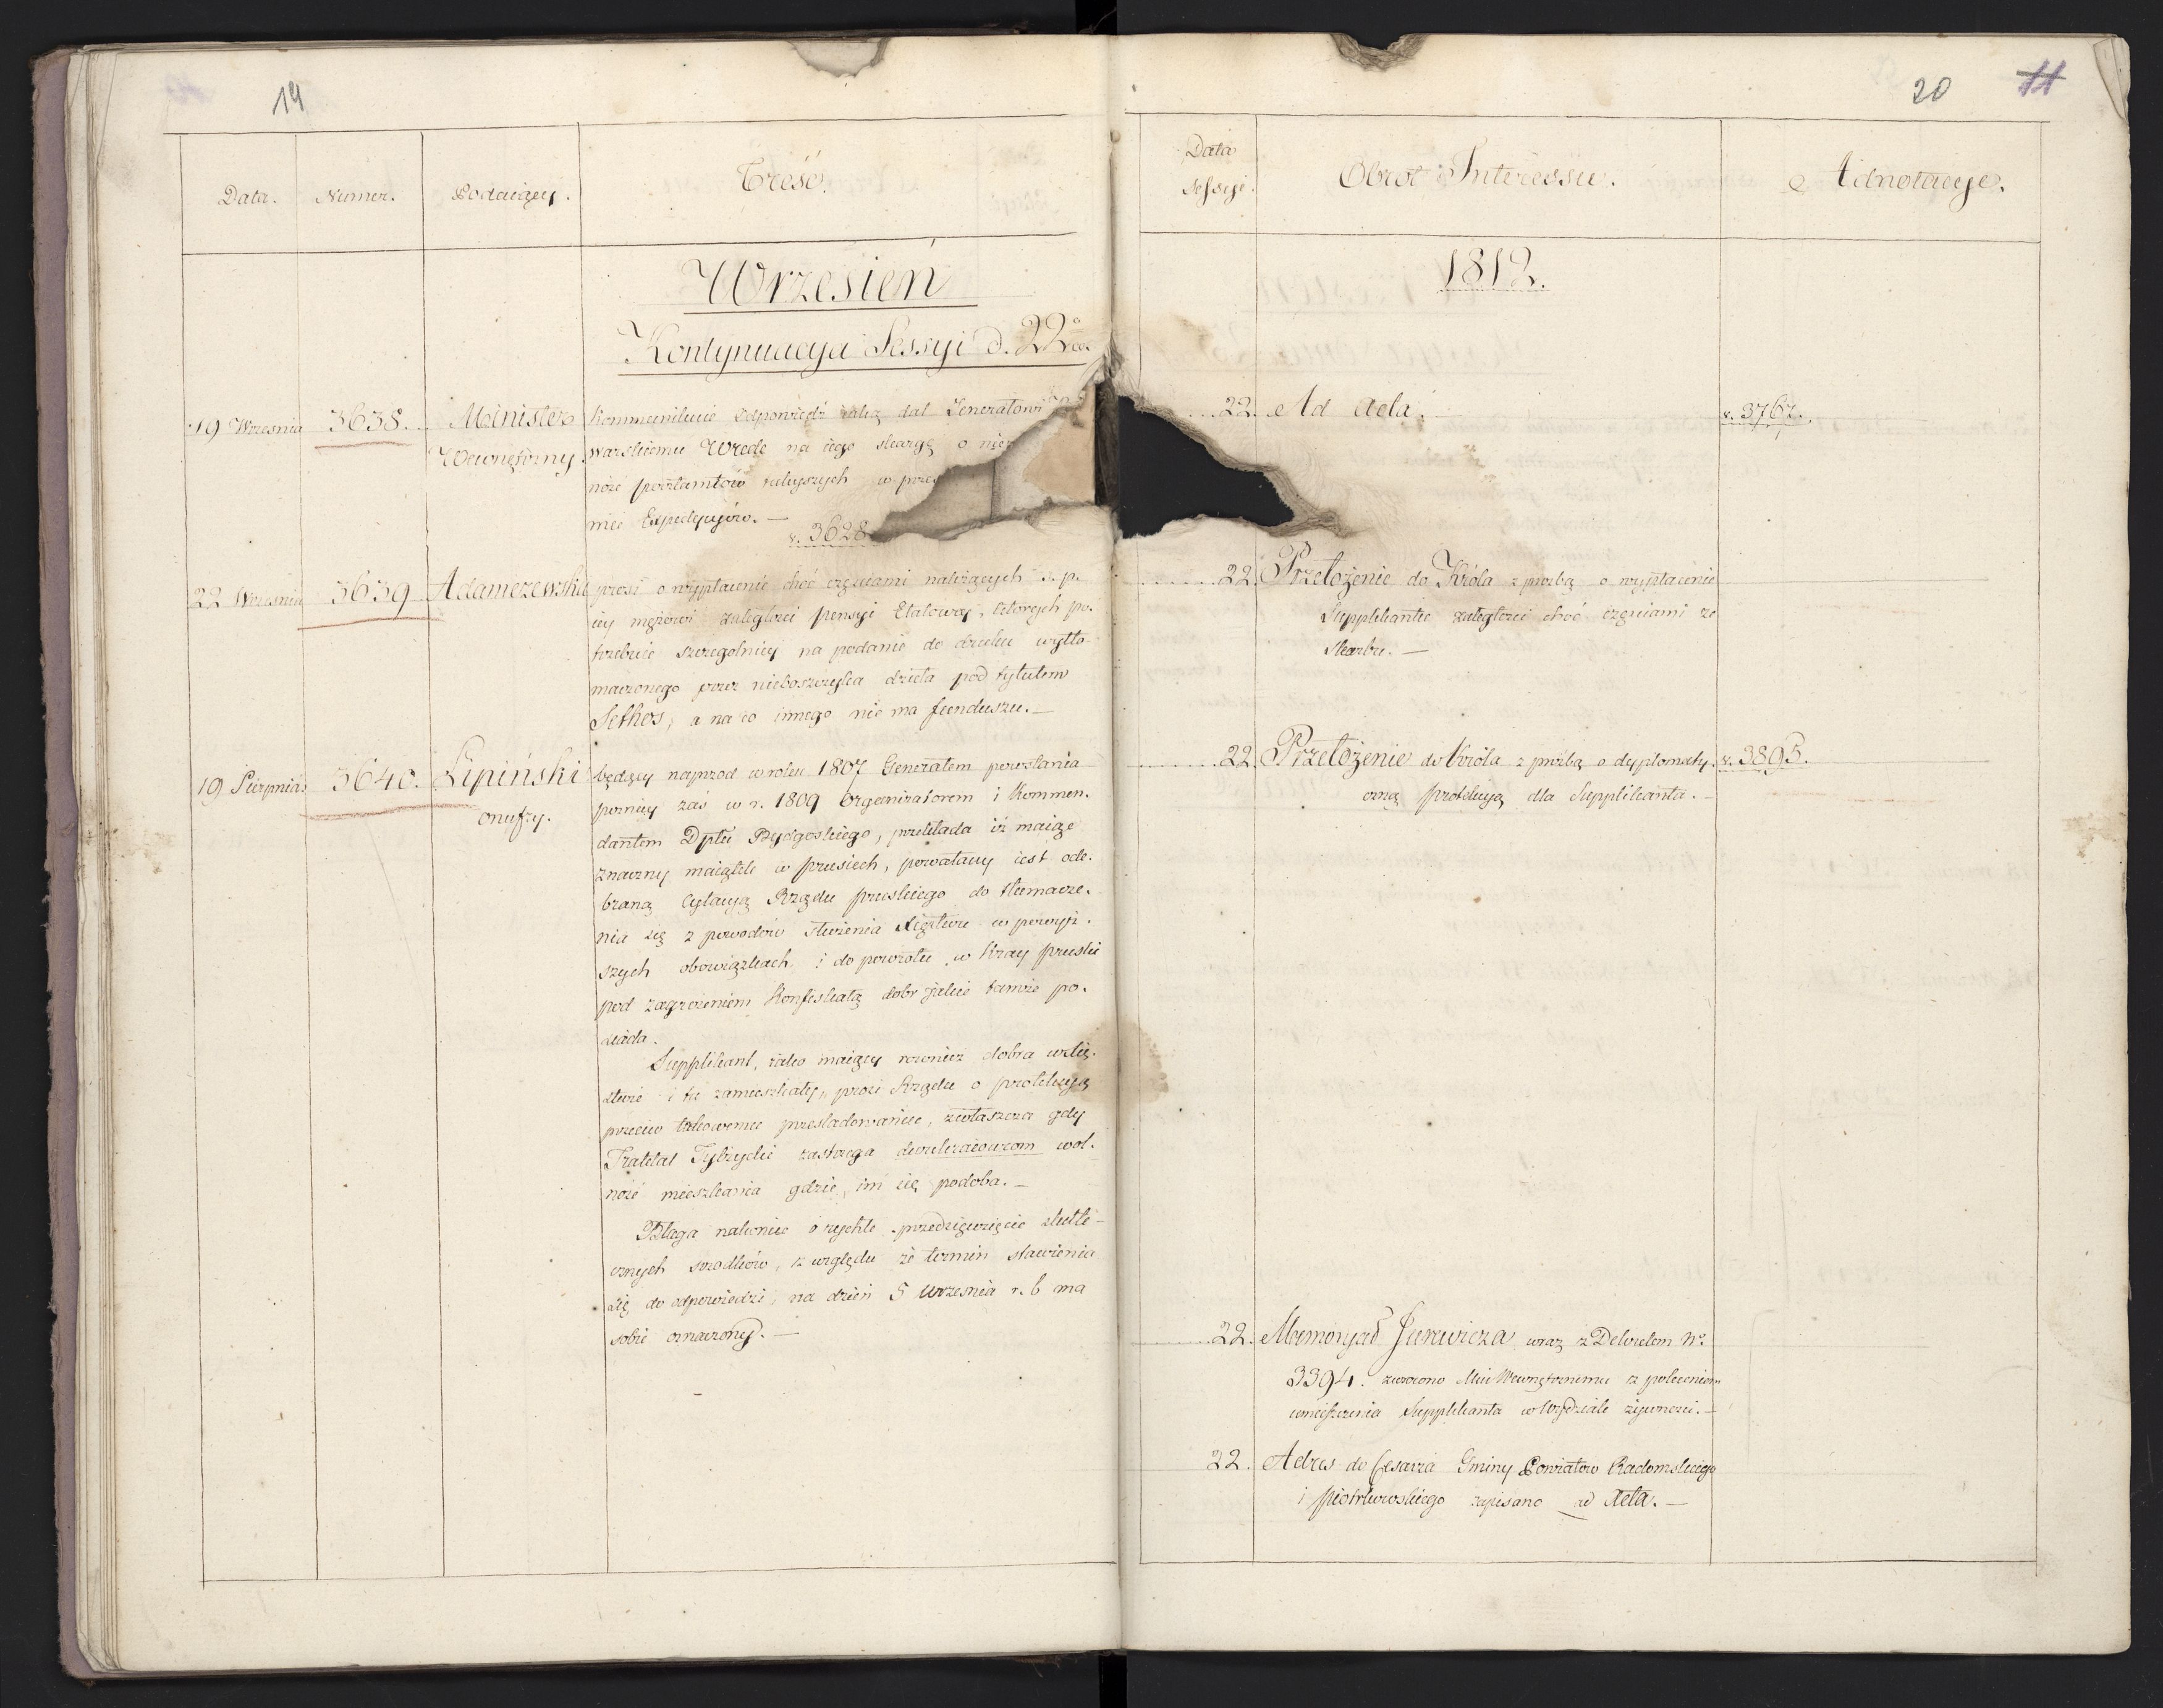 19
Data.
Numer.
Podaiący.
Treść.
Wrzesień
Kontynuacya Sessyi d. 22
19 Września
3638.
Minister
Wewnętrzny.
Kommunikuie odpowiedź iaką dał Generałowi
warskiemu Wrede na iego skargę o nie
ność pocztamtów tuteyszych w prze
niu Expedycyów. —
v. 3628
22 Września
3639
Adamczewska
prosi o wypłacenie choć częściami należących ś. p.
iey mężowi zaległości pensyi Etatowey, których po-
trzebuie szczegolniey na podanie do druku wytło-
maczonego przez nieboszczyka dzieła pod tytułem
Sethos, a na co innego nie ma funduszu. —
19 Sierpnia
3640.
Lipiński
Onufry.
będący naprzod w roku 1807 Generałem powstania
pozniey zaś w r. 1809 Organizatorem i Kommen-
dantem Dptu Bydgoskiego, przekłada iż maiąc
znaczny maiątek w prusiech, powołany iest ode-
braną Cytacyą Rządu pruskiego do tłumacze-
nia się z powodów służenia Xięstwu w powyż-
szych obowiązkach i do powrotu w Kray pruski
pod zagrożeniem Konfiskatą dobr jakie tamże po-
siada.
Supplikant, iako maiący rownież dobra w Xię-
stwie i tu zamieszkały, prosi Rządu o protekcyą
przeciw takowemu prześladowaniu, zwłaszcza gdy
Traktat Tylżycki zastrzega dwukraiowcom wol-
ność mieszkania gdzie im się podoba. —
Błaga nakoniec o rychłe przedsięwzięcie skute-
cznych srodków, z względu że termin stawienia
się do odpowiedzi, na dzień 5 Września r. b ma
sobie oznaczony. —
20
11
Data
Sessyi.
Obrot Interessu.
Adnotacye.
1812.
22. Ad Acta.
v. 3767.
22. Przełożenie do Króla z prozbą o wypłacenie
Supplikantce zaległości choć częściami ze
Skarbu. —
22. Przełożenie do Króla z prozbą o dyplomaty-
czną protekcyą dla Supplikanta. —
v. 3895.
22. Memoryał Jurewicza wraz z Dekretem Nº
3394. zwrócono Mwi Wewnętrznemu z poleceniem
umieszczenia Supplikanta w Wydziale żywności. —
22. Adres do Cesarza Gminy Powiatów Radomskiego
i Piotrkowskiego zapisano ad Acta. —